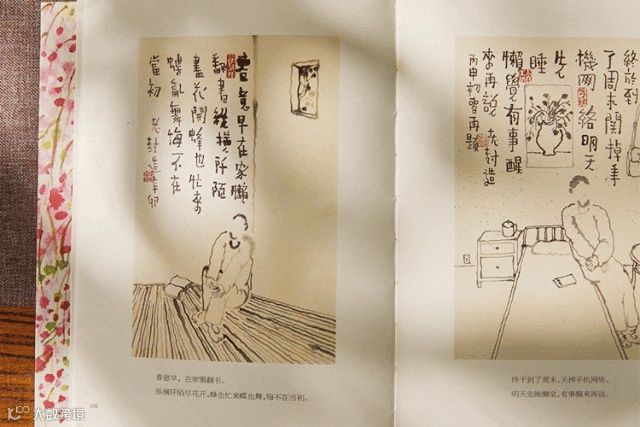 春意早在家懒
翻書縱横阡陌
盡花開蜂也忙來
蝶亂舞悔不在
當初 老封造
春意早，在家懒翻书。
纵横阡陌尽花开，蜂也忙来蝶也舞，悔不在当初。
终於到
了周末関掉手
機网絡明天
先
睡
懶覺有事醒
來再說 老封造
丙申初夏再題
终于到了周末，关掉手机网络。
明天先睡懒觉，有事醒来再说。
大数跨境